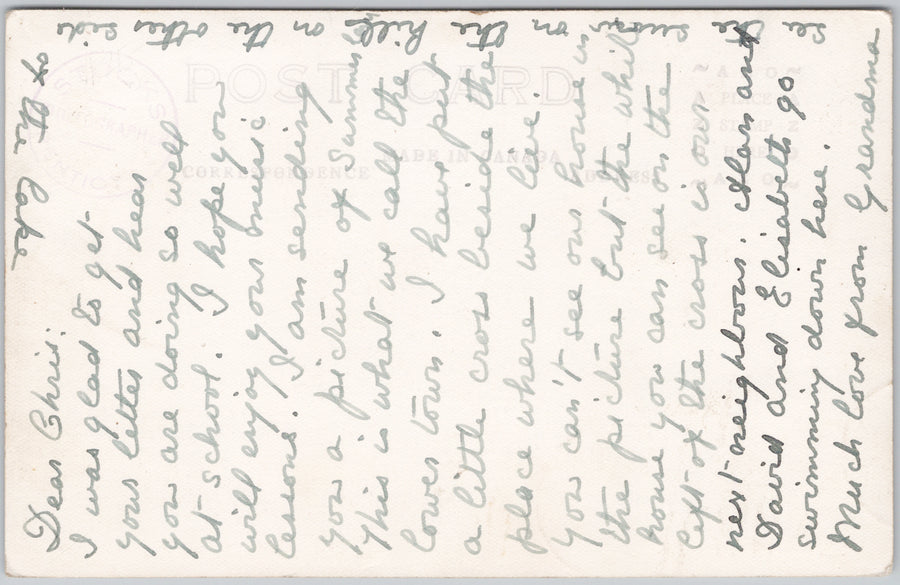 Dear Chris,
I was glad to get
your letter and hear
you are doing so well
at school. I hope you
will enjoy your music
lessons. I am sending
you a picture of
This is what we call the
lower town. I have put
a little cross beside the
place where we live.
You can't see our house in
the picture but the white
house you can see on the
left of the cross is our
next neighbour. Alan and
David and Elisabeth go
swimming down here.
Much love from Grandma
the snow on the hills on the other side
of the lake
POST CARD
MADE IN CANADA
CORRESPONDENCE
ADDRESS
PLACE
STAMP